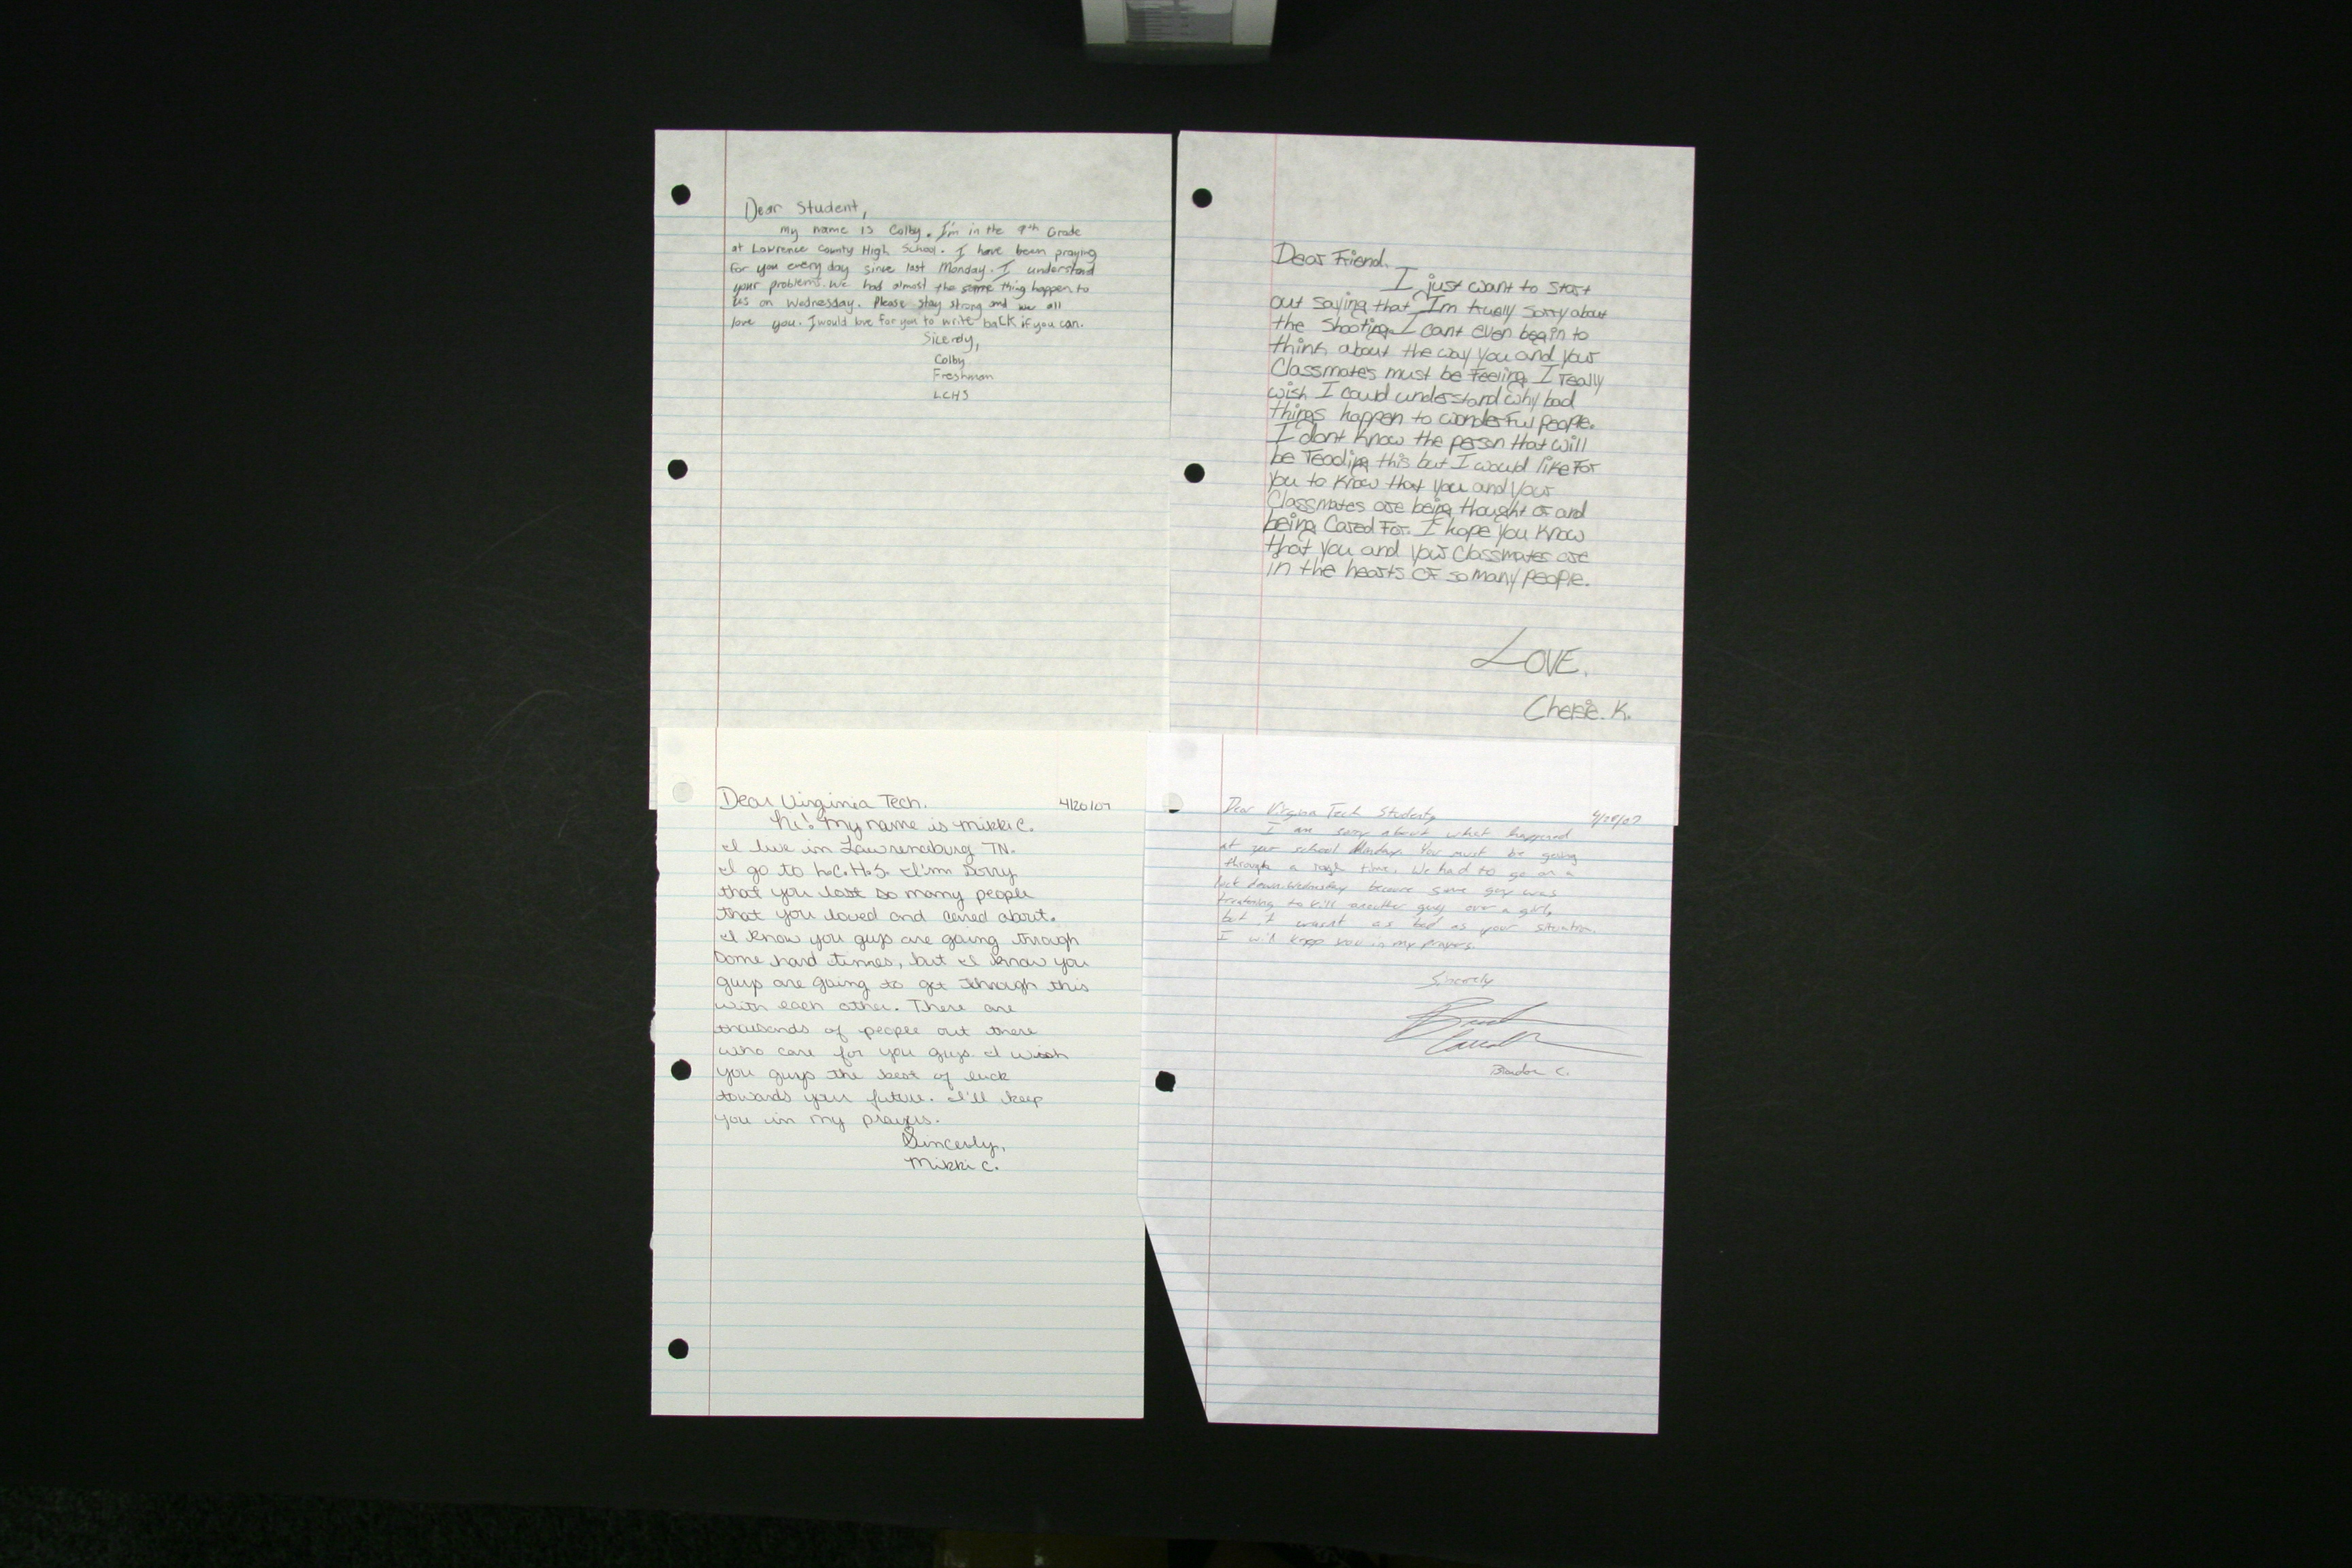 Dear Student,
My name is Colby. I'm in the 9th Grade
at Lawrence County High School. I have been praying
for you every day since last Monday. I understand
your problems. We had almost the same thing happen to
us on Wednesday. Please stay strong and we all
love you. I would love for you to write back if you can.
Sicerely,
Colby
Freshman
LCHS
Dear Friend.
I just want to start
out saying that I'm truely sorry about
the shooting. I cant even begin to
think about the way you and your
Classmates must be Feeling. I really
wish I could understand why bad
things happen to wonderful people.
I dont know the person that will
be reading this but I would like For
you to know that you and your
Classmates are being thought of and
being Cared For. I hope you know
that you and your Classmates are
in the hearts of so many people.
LOVE.
K.
Dear Virginia Tech.
4/20/07
hi! My name is Mikki C.
I live in Lawrenceburg TN.
I go to L.C.H.S. I'm sorry
that you lost so many people
that you loved and cared about.
I know you guys are going through
some hard times, but I know you
guys are going to get through this
with each other. There are
thousands of people out there
who care for you guys. I wish
you guys the best of luck
towards your future. I'll keep
you in my prayers.
Sincerly,
Mikki C.
Dear Virgina Tech Students,
4/20/07
I am sorry about what happened
at your school Monday. You must be going
through a rough time. We had to go on a
lock down wednesday because some guy was
to kill another guy over a girl,
but it wasnt as bad as your situation.
I will keep you in my prayers.
Sincerely
Brandon C.